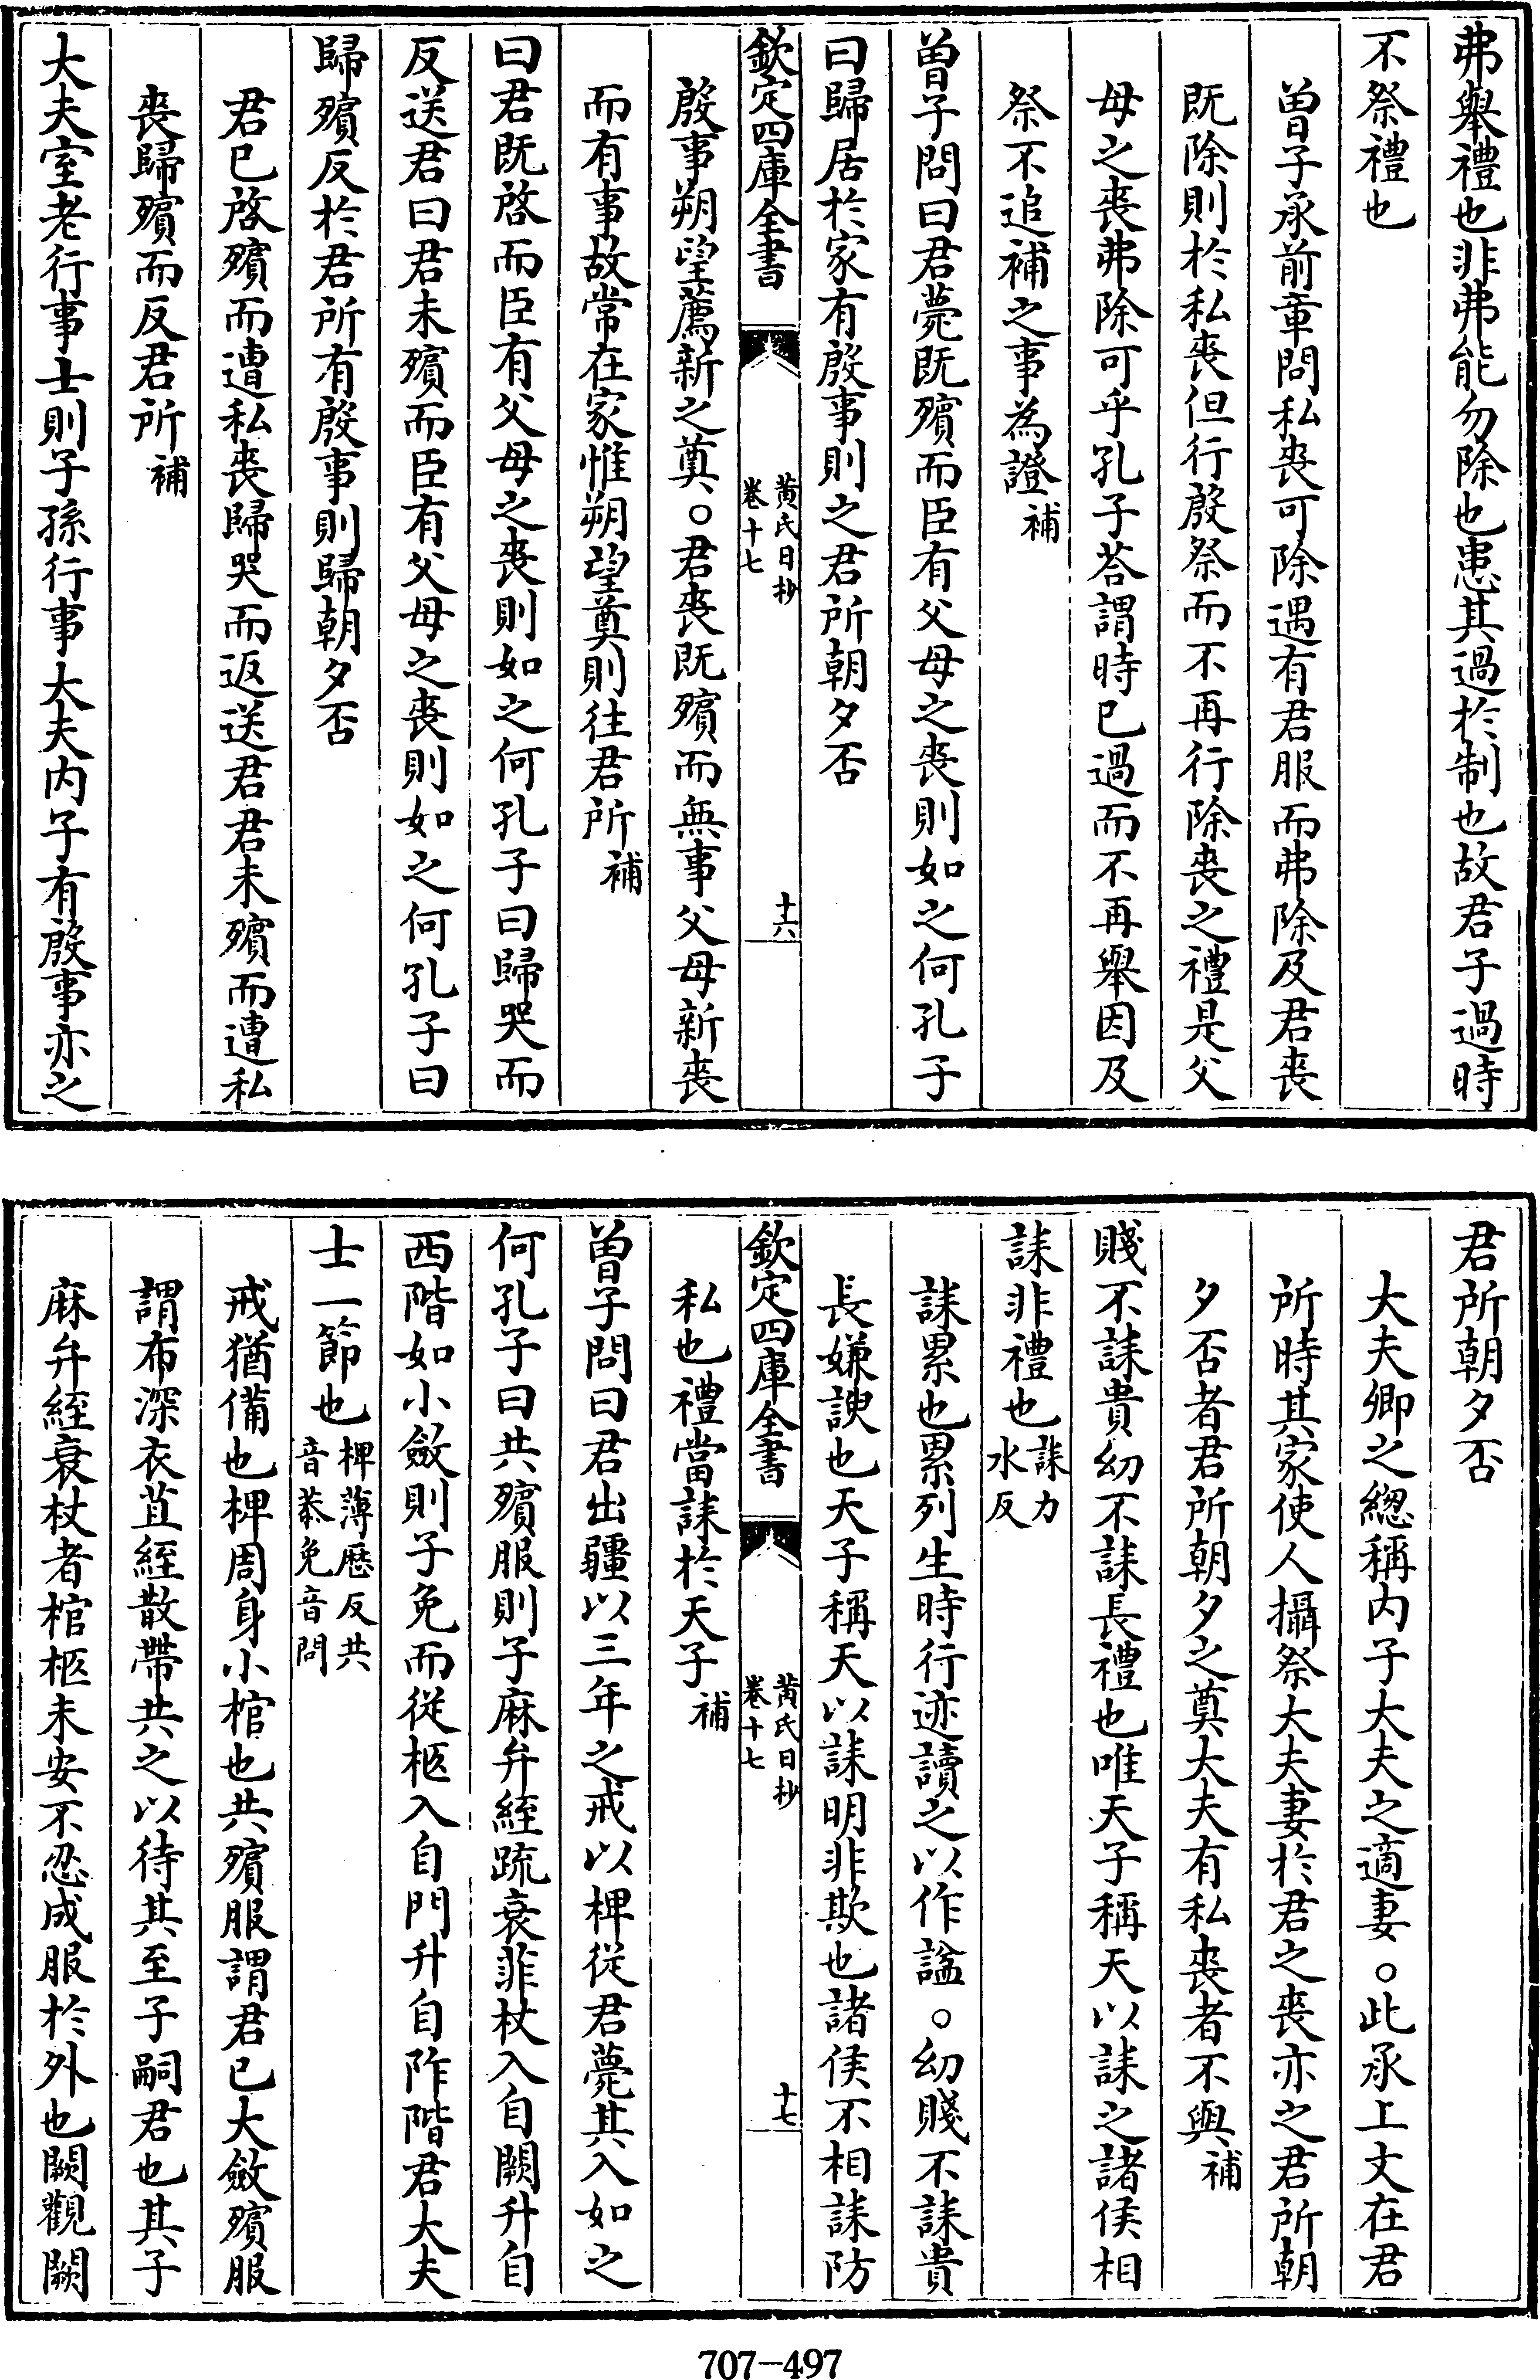 弗舉禮也非弗能勿除也患其過於制也故君子過時
不祭禮也
曽子承前章問私喪可除遇有君服而弗除及君喪
既除則於私喪但行殷祭而不再行除喪之禮是父
母之喪弗除可乎孔子荅謂時已過而不再舉因及
祭不追補之事為證補
曽子問曰君薨既殯而臣有父母之喪則如之何孔子
曰歸居於家有殷事則之君所朝夕否
欽定四庫全書
黄氏日抄
卷十七
十六
殷事朔望薦新之奠○君喪既殯而無事父母新喪
而有事故常在家惟朔望奠則往君所補
曰君既啓而臣有父母之喪則如之何孔子曰歸哭而
反送君曰君未殯而臣有父母之喪則如之何孔子曰
歸殯反於君所有殷事則歸朝夕否
君已啓殯而遭私喪歸哭而返送君君未殯而遭私
喪歸殯而反君所補
大夫室老行事士則子孫行事大夫内子有殷事亦之
君所朝夕否
大夫卿之緫稱内子大夫之適妻○此承上文在君
所時其家使人攝祭大夫妻於君之喪亦之君所朝
夕否者君所朝夕之奠大夫有私喪者不與補
賤不誄貴幼不誄長禮也唯天子稱天以誄之諸侯相
誄非禮也誄力
水反
誄累也累列生時行迹讀之以作諡○幼賤不誄貴
長嫌諛也天子稱天以誄明非欺也諸侯不相誄防
欽定四庫全書
黄氏日抄
卷十七
十七
私也禮當誄於天子補
曽子問曰君出疆以三年之戒以椑從君薨其入如之
何孔子曰共殯服則子麻弁絰疏衰菲杖入自闕升自
西階如小斂則子免而從柩入自門升自阼階君大夫
士一節也椑薄厯反共
音恭免音問
戒猶備也椑周身小棺也共殯服謂君已大斂殯服
謂布深衣苴絰散帶共之以待其至子嗣君也其子
麻弁絰衰杖者棺柩未安不忍成服於外也闕觀闕
707-497